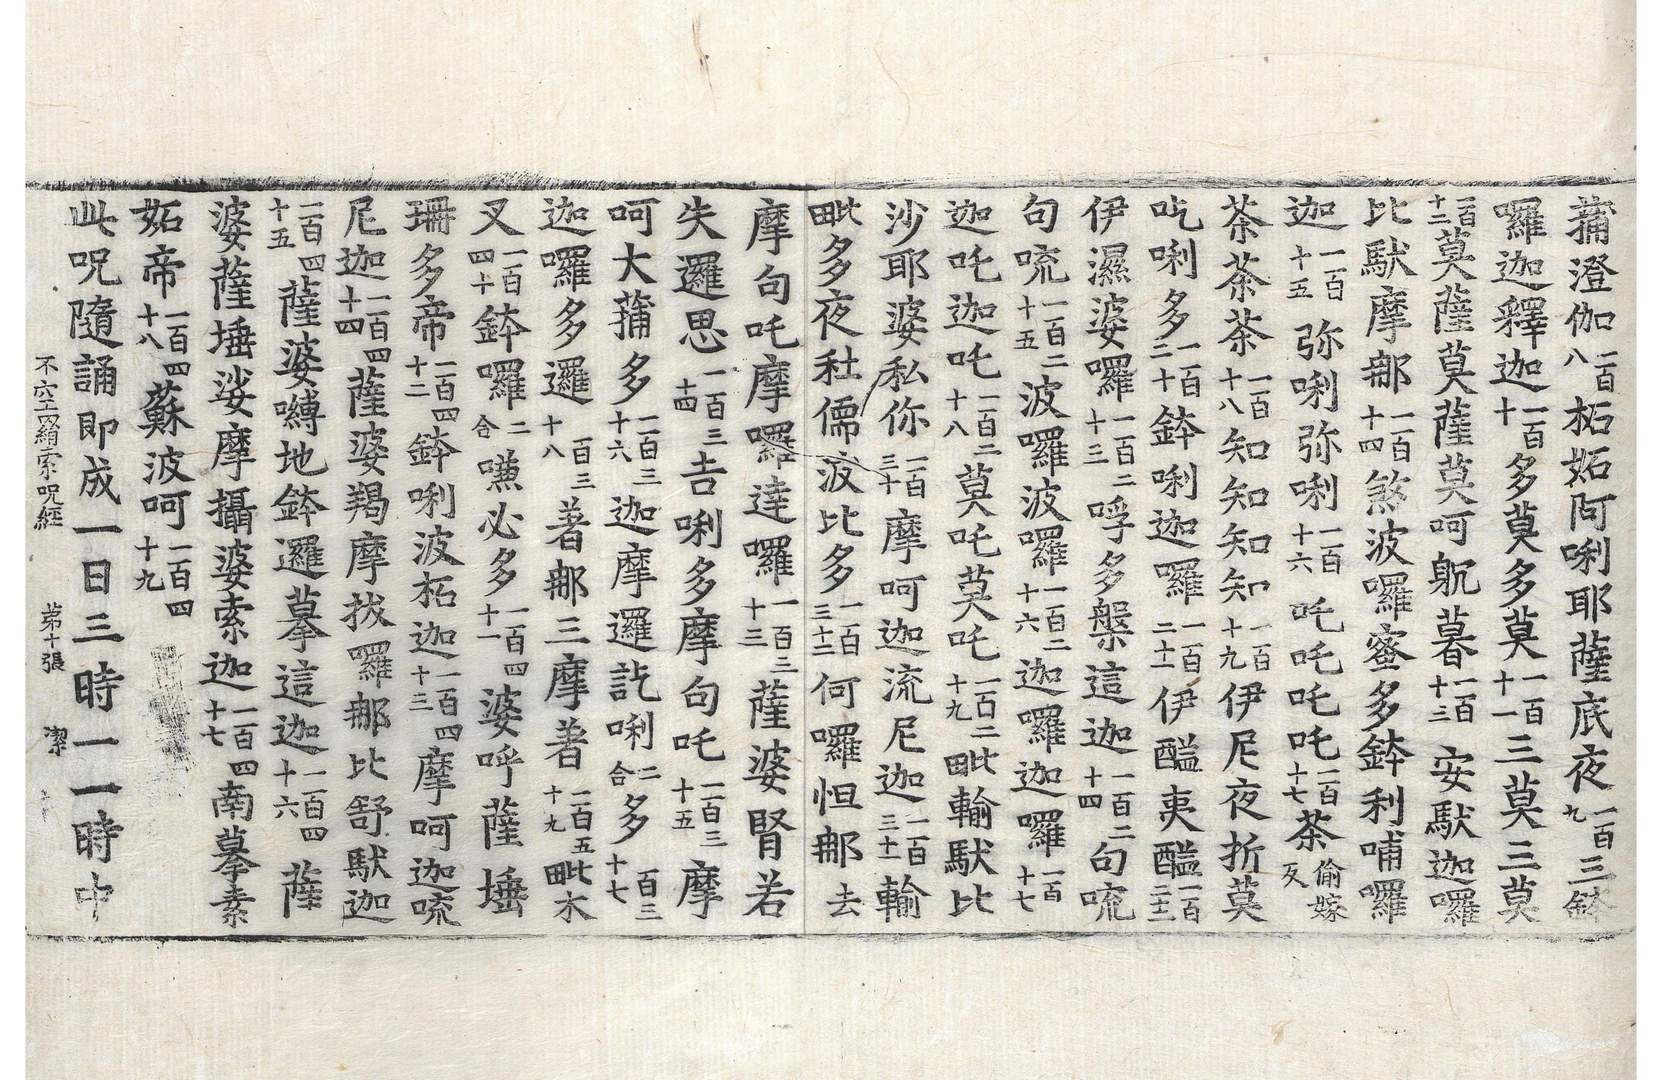 蒲澄伽一百八柘妬阿唎耶薩底夜一百九三鉢
囉迦釋迦一百十多莫多莫一百十一三莫三莫
一百十二莫薩莫薩莫呵䑓暮一百十三安馱迦囉
比馱摩那一百十四煞波囉蜜多鉢利哺囉
迦一百十五弥唎弥唎一百十六吒吒吒吒一百十七茶偷嫁反
茶茶茶一百十八知知知知一百十九伊尼夜折莫
吃唎多一百二十鉢唎迦囉一百二十一伊醯夷醯一百二十二
伊濕婆囉一百二十三呼多槃這迦一百二十四句㗚
句㗚一百二十五波囉波囉一百二十六迦囉迦囉一百十七
迦吒迦吒一百二十八莫吒莫吒一百二十九毗輸馱比
沙耶婆私你一百三十摩呵迦流尼迦一百三十一輸
毗多夜社儒波比多一百三十二何囉怛那去
摩句吒摩囉達囉一百三十三薩婆腎若
失邏思一百三十四吉唎多摩句吒一百三十五摩
呵大蒲多一百三十六迦摩邏訖唎二合多百三十七
迦囉多邏百三十八著那三摩著一百五十九毗木
叉一百四十鉢囉二合嗛必多一百四十一婆呼薩埵
珊多帝一百四十二鉢唎波柘迦一百四十三摩呵迦㗚
尼迦一百四十四薩婆羯摩拔囉那比舒馱迦
一百四十五薩婆嚩地鉢邏摹這迦一百四十六薩
婆薩埵娑摩攝婆索迦一百四十七南摹素
妬帝一百四十八蘇波呵一百四十九
此呪隨誦即成一日三時一一時中
不空羂索呪經 第十張 潔